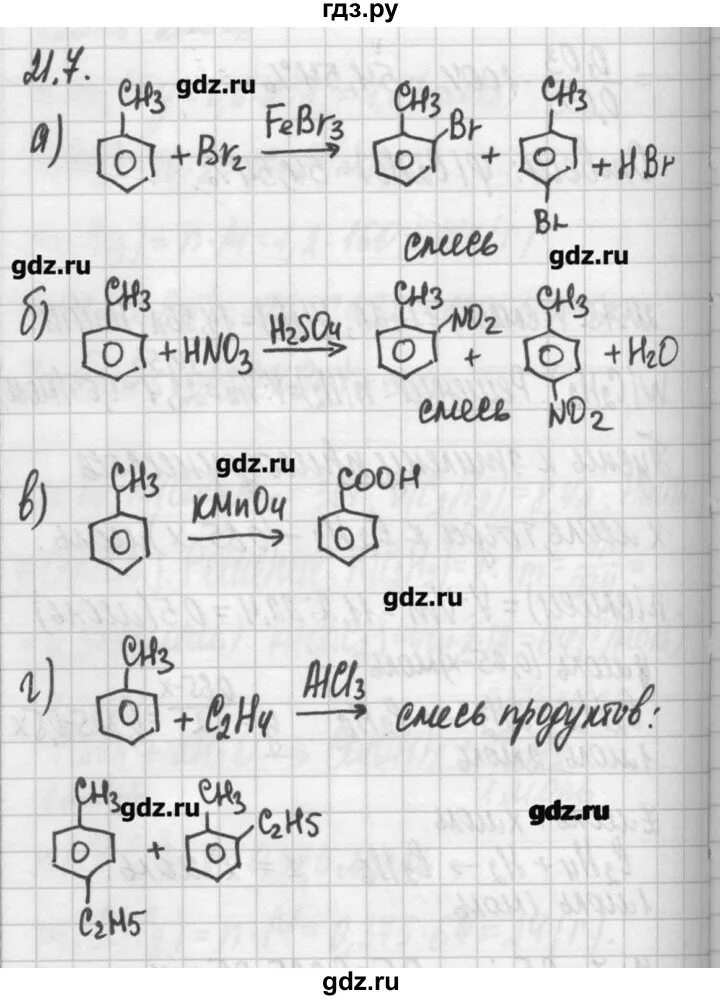 гдз.ру
21.7.
gdz.ru
а)
CH3
+ Br2
FeBr3
CH3
Br
+
CH3
Br
+ HBr
смесь
gdz.ru
gdz.ru
б)
CH3
+ HNO3
H2SO4
CH3
NO2
+
CH3
NO2
+ H2O
смесь
gdz.ru
в)
CH3
KMnO4
COOH
gdz.ru
г)
CH3
+ C2H4
AlCl3
смесь продуктов:
CH3
gdz.ru
C2H5
+
CH3
C2H5
gdz.ru
gdz.ru